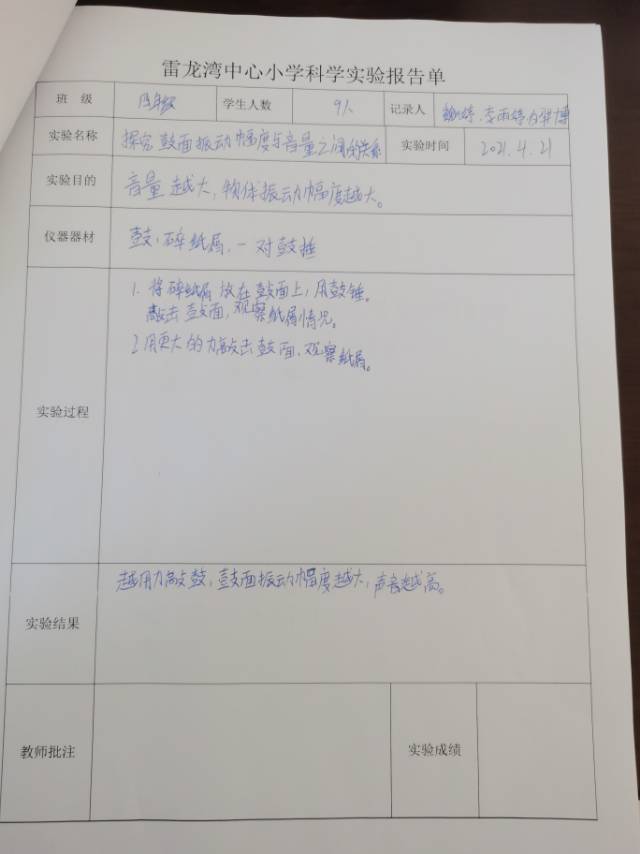 雷龙湾中心小学科学实验报告单
班 级 四年级 学生人数 9人 记录人 李雨婷
实验名称 探究鼓面振动幅度与音量之间的关系 实验时间 2021.4.21
实验目的 音量越大,物体振动幅度越大。
仪器器材 鼓,碎纸屑,一对鼓捶
实验过程
1. 将碎纸屑放在鼓面上,用鼓锤。
敲击鼓面,观察纸屑情况。
2.用更大的力敲击鼓面,观察纸屑。
实验结果
越用力敲鼓,鼓面振动幅度越大,声音越高。
教师批注 实验成绩